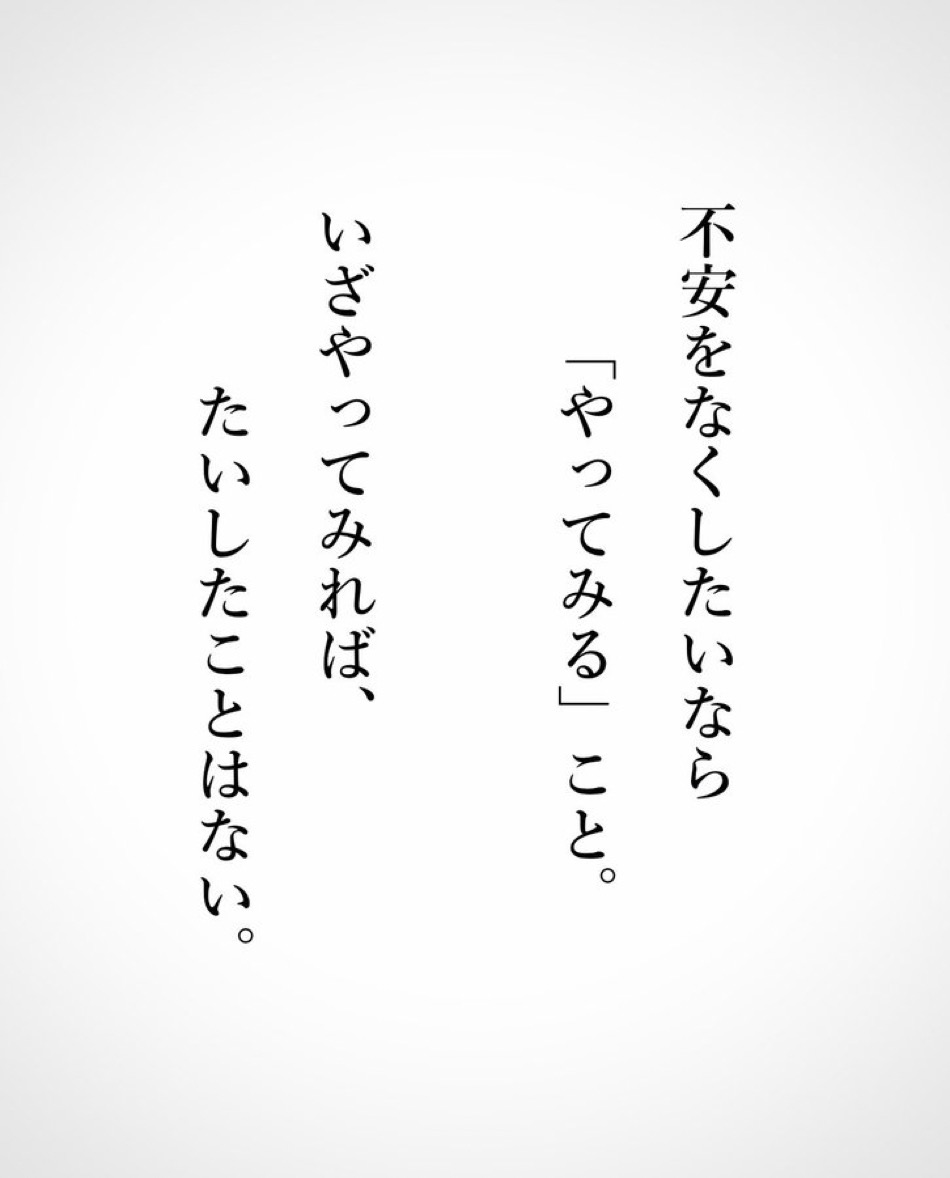 不安をなくしたいなら
「やってみる」こと。
いざやってみれば、
たいしたことはない。